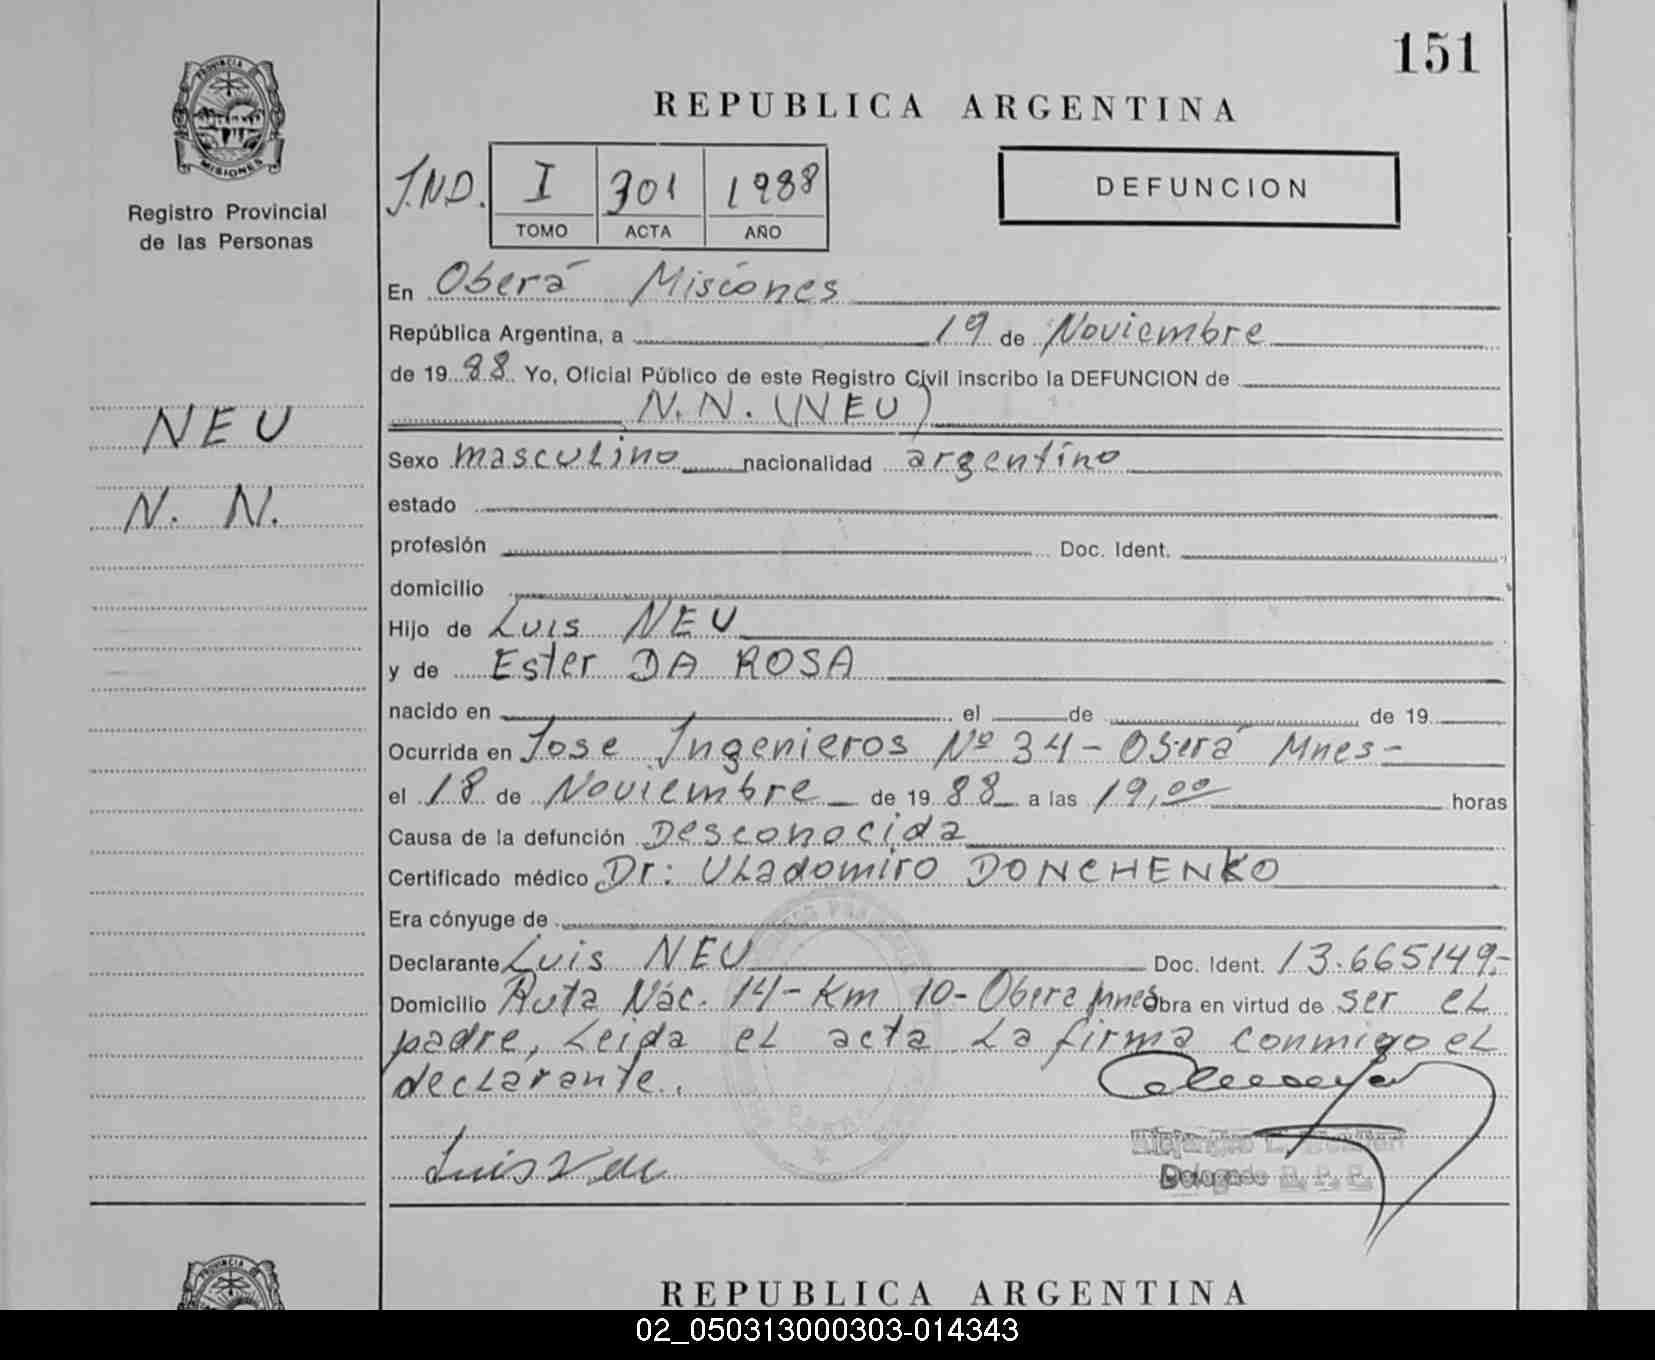 151
PROVINCIA
MISIONES
Registro Provincial
de las Personas
REPUBLICA ARGENTINA
J.ND. I 301 1988
TOMO ACTA AÑO
DEFUNCION
En Oberá Misiones
República Argentina, a 19 de Noviembre
de 19 88 Yo, Oficial Público de este Registro Civil inscribo la DEFUNCION de
N.N. (NEU)
NEU
N. N.
Sexo masculino nacionalidad argentino
estado
profesión Doc. Ident.
domicilio
Hijo de Luis NEU
y de Ester DA ROSA
nacido en el de de 19
Ocurrida en Jose Ingenieros Nº 34 - Oberá Mnes -
el 18 de Noviembre de 19 88 a las 19,00 horas
Causa de la defunción Desconocida
Certificado médico Dr: VLadomiro DONCHENKO
Era cónyuge de
Declarante Luis NEU Doc. Ident. 13.665149.-
Domicilio Ruta Nac. 14 - Km 10 - Obera Mnes Obra en virtud de ser eL
padre, Leida eL acta La firma conmigo eL
decLarante.
Luis Neu
Delegado R. P. P.
PROVINCIA
REPUBLICA ARGENTINA
02_050313000303-014343